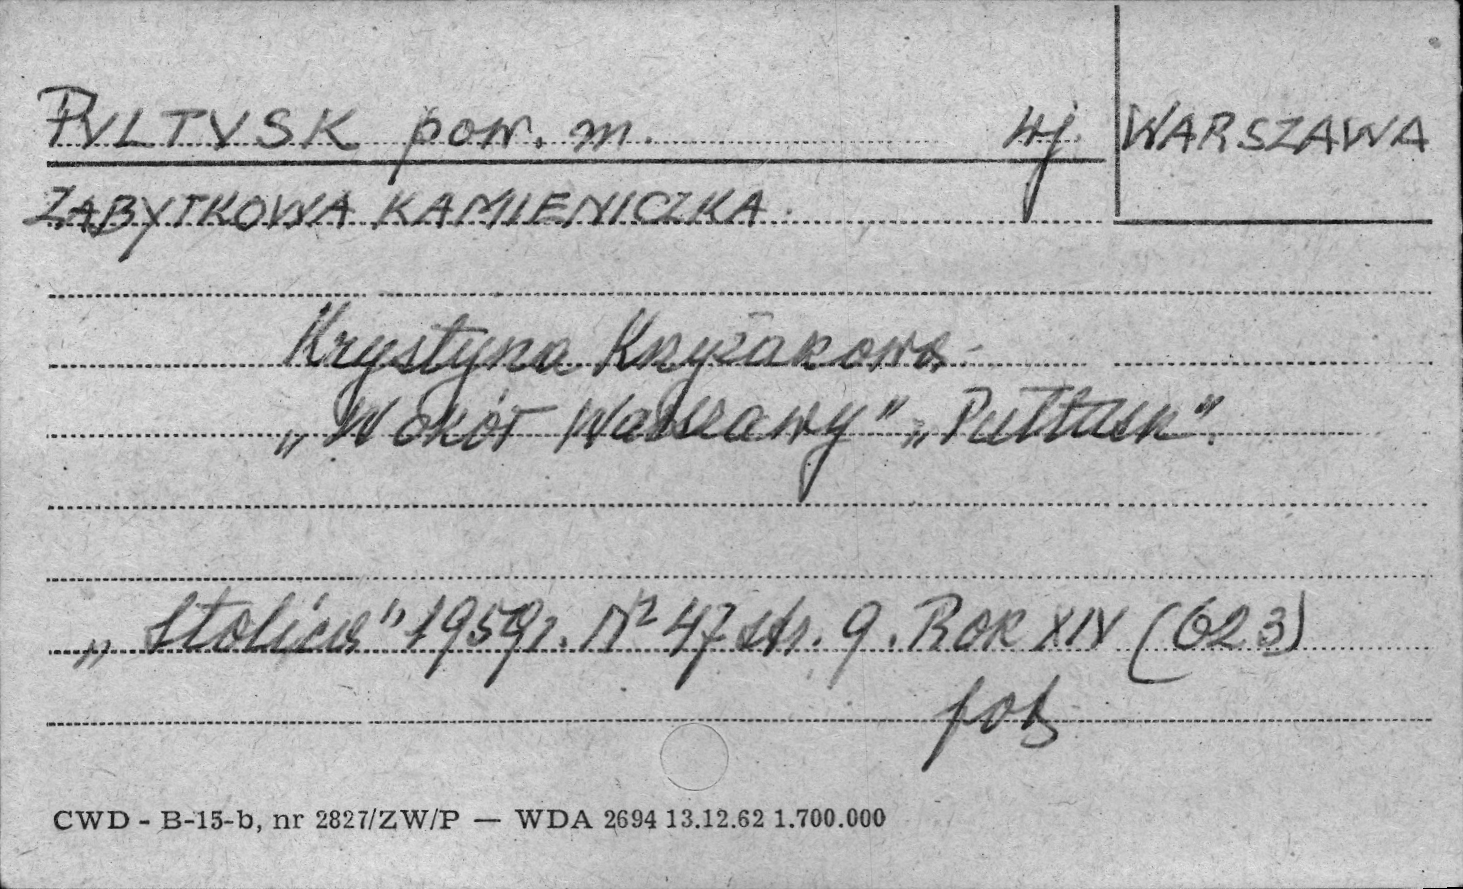 PULTUSK pow. m. 4j. WARSZAWA
ZABYTKOWA KAMIENICZKA.
Krystyna Knyżakowa
„Wokół Warszawy" „Pułtusk".
„Stolica" 1959r. Nr 47 str. 9. Rok XIV (623)
fot
CWD - B-15-b, nr 2827/ZW/P — WDA 2694 13.12.62 1.700.000